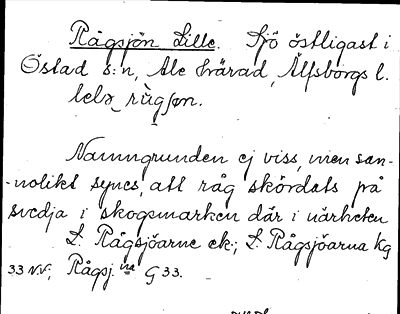 Rågsjön Lille. Sjö östligast i
Östad s:n, Ale härad, Älfsborgs l.
lelə rùgʃøn.
Namngrunden ej viss, men san-
-nolikt synes, att råg skördats på
svedja i skogsmarken där i närheten
L. Rågsjöarne ek; L. Rågsjöarna Kg
33 NV; Rågsj. na G 33.